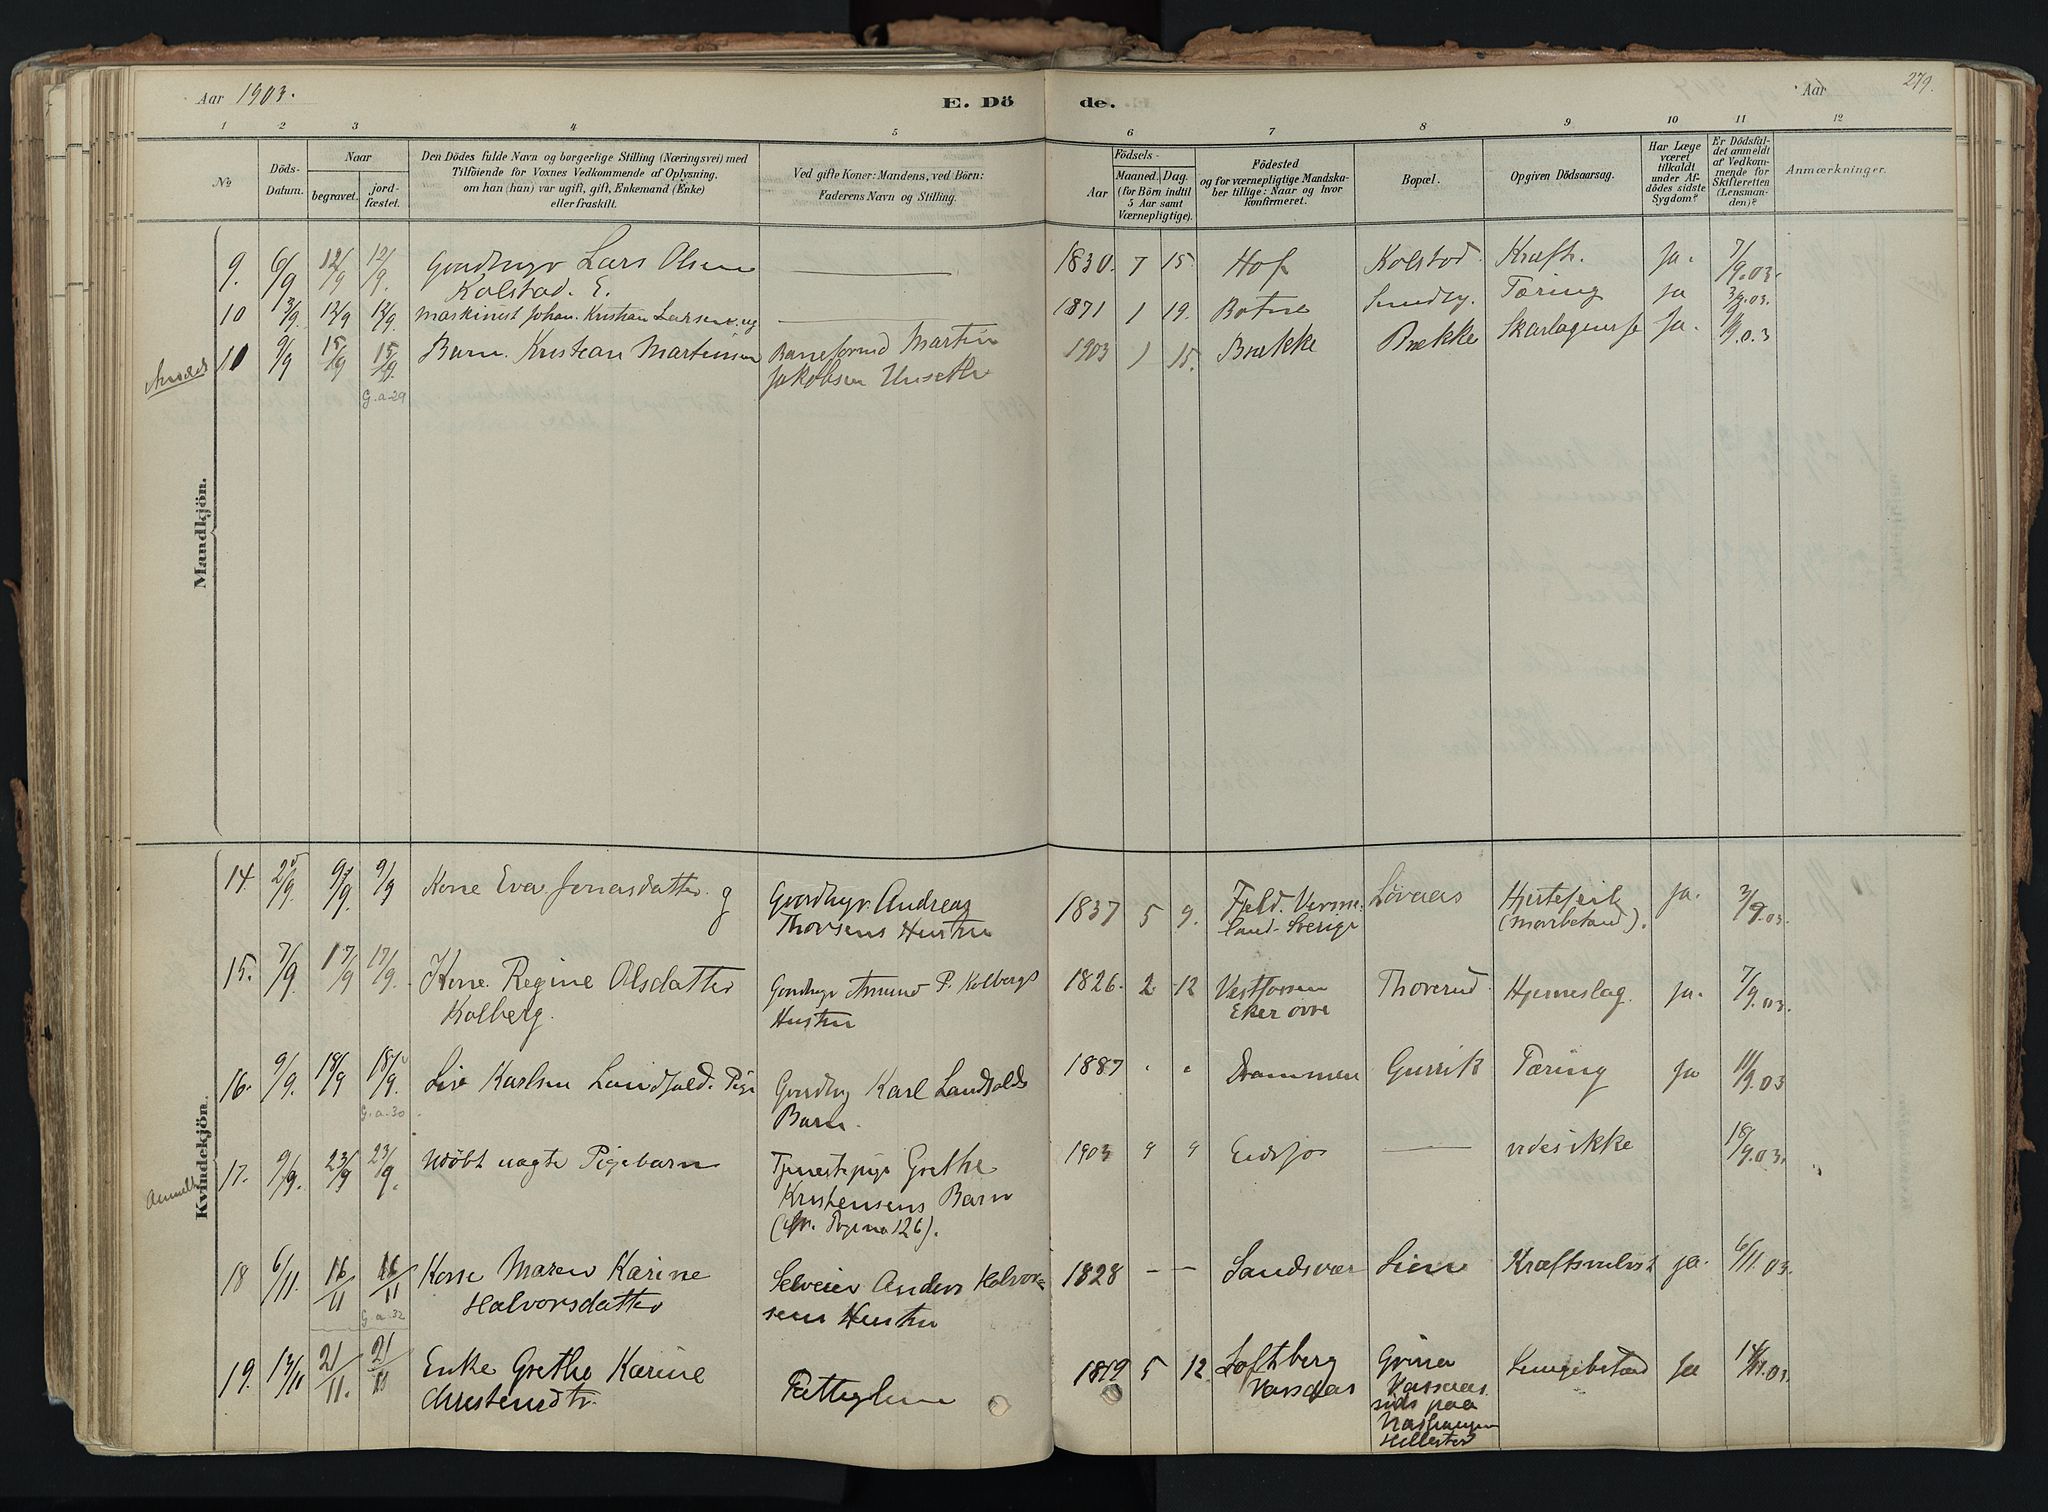 Aar 1903.
E. Dö
de.
Aar
279.
1 2 3 4 5 6 7 8 9 10 11 12
No
Döds-
Datum.
Naar
begravet.
jord-
fæstet.
Den Dödes fulde Navn og borgerlige Stilling (Næringsvei) med
Tilföiende for Voxnes Vedkommende af Oplysning,
om han (hun) var ugift, gift, Enkemand (Enke)
eller fraskilt.
Ved gifte Koner: Mandens, ved Börn:
Faderens Navn og Stilling.
Födsels-
Aar
Maaned.
Dag.
(for Börn indtil
5 Aar samt
Værnepligtige).
Födested
og for værnepligtige Mandska-
ber tillige: Naar og hvor
konfirmeret.
Bopæl.
Opgiven Dödsaarsag.
Har Læge
været
tilkaldt
under Af-
dödes sidste
Sygdom?
Er Dödsfal-
det anmeldt
af Vedkom-
mende for
Skifteretten
(Lensman-
den)?
Anmærkninger.
Mandkjön.
9. 6/9 12/9 12/9. Lars Olsen 1830. 7 15. Hof Kolstad. Kræft. Ja. 7/9.03.
Kolstad. E.
10 3/9. 12/9 12/9. Maskinist Johan Kristian Larsen ug 1871 1 19. Botne Sundby. Tæring ja 3/9.03.
11 9/9 15/9 15/9 Barn. Kristian Martinsen Martin 1903 1 15. Brække Brække Ja. 9/9.03
G.a.29 Jakobsen
Kvindekjön.
14. 2/9. 9/9. 9/9 Kone Eva Jonasdatter. g Andreas 1837 5 9. Fjeld. Verm- Løvaas Hjertefeil ja. 3/9.03.
Thorsens Hustru land. Sverige
15. 7/9. 17/9 17/9. Kone Regine Olsdatter Amund P. Kolbergs 1826. 2 12 Vestfossen Thorerud Hjerneslag. ja. 7/9.03.
Kolberg. Hustru Eker øvre
16. 9/9. 18/9 18/9. Karlsen Landfald. Pige Karl Landfalds 1887 Drammen Gurrik Tæring ja 11/9.03
G.a.30 Barn.
17. 9/9. 23/9 23/9. Udøbt uægte Pigebarn Tjenestepige Grethe 1903 " " Eidsfos vides ikke 18/9.03.
Kristensens Barn
(cfr. Pagina 126).
18 6/11. 16/11 16/11 Kone Maren Karine Selveier Anders Halvor- 1828 — — Sandsvær Lien ja. 6/11.03.
Halvorsdatter sens Hustru
G.a.32
19. 21/11. 21/11 Enke Grethe Karine 1819 5 12. Grina ja 14/11.03.
sids paa